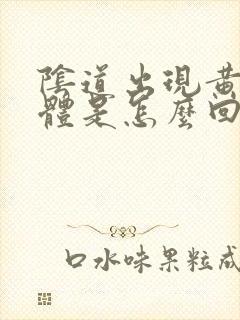 陰道出現黃
體是怎麼回
口水味果粒成